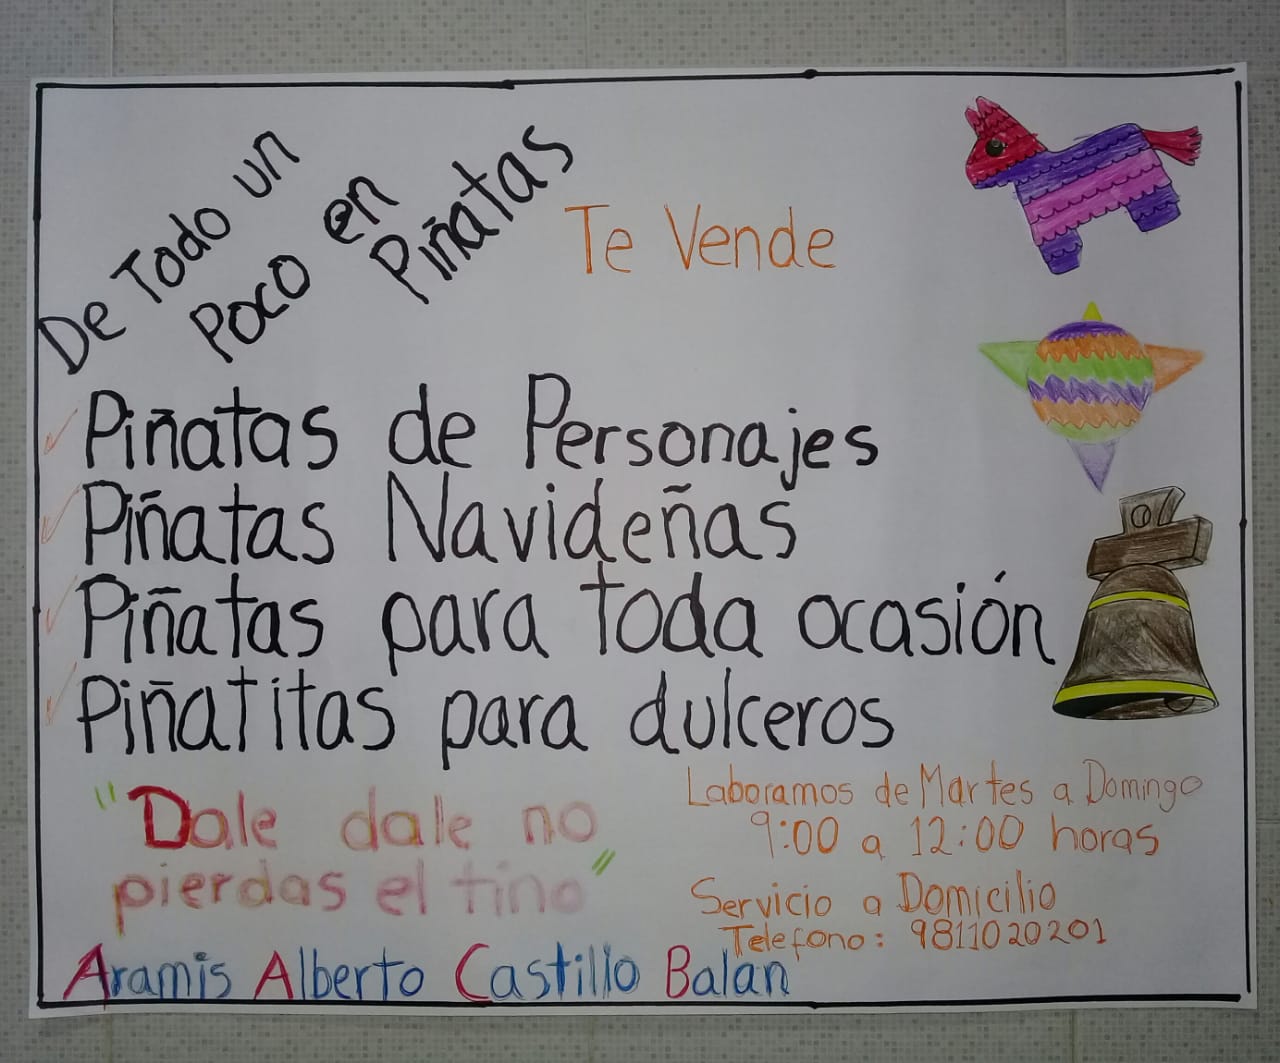 De Todo un
Poco en
Piñatas
Te Vende
Piñatas de Personajes
Piñatas Navideñas
Piñatas para toda ocasión
Piñatitas para dulceros
"Dale dale no
pierdas el tino"
Laboramos de Martes a Domingo
9:00 a 12:00 horas
Servicio a Domicilio
Telefono: 9811020201
Aramis Alberto Castillo Balan